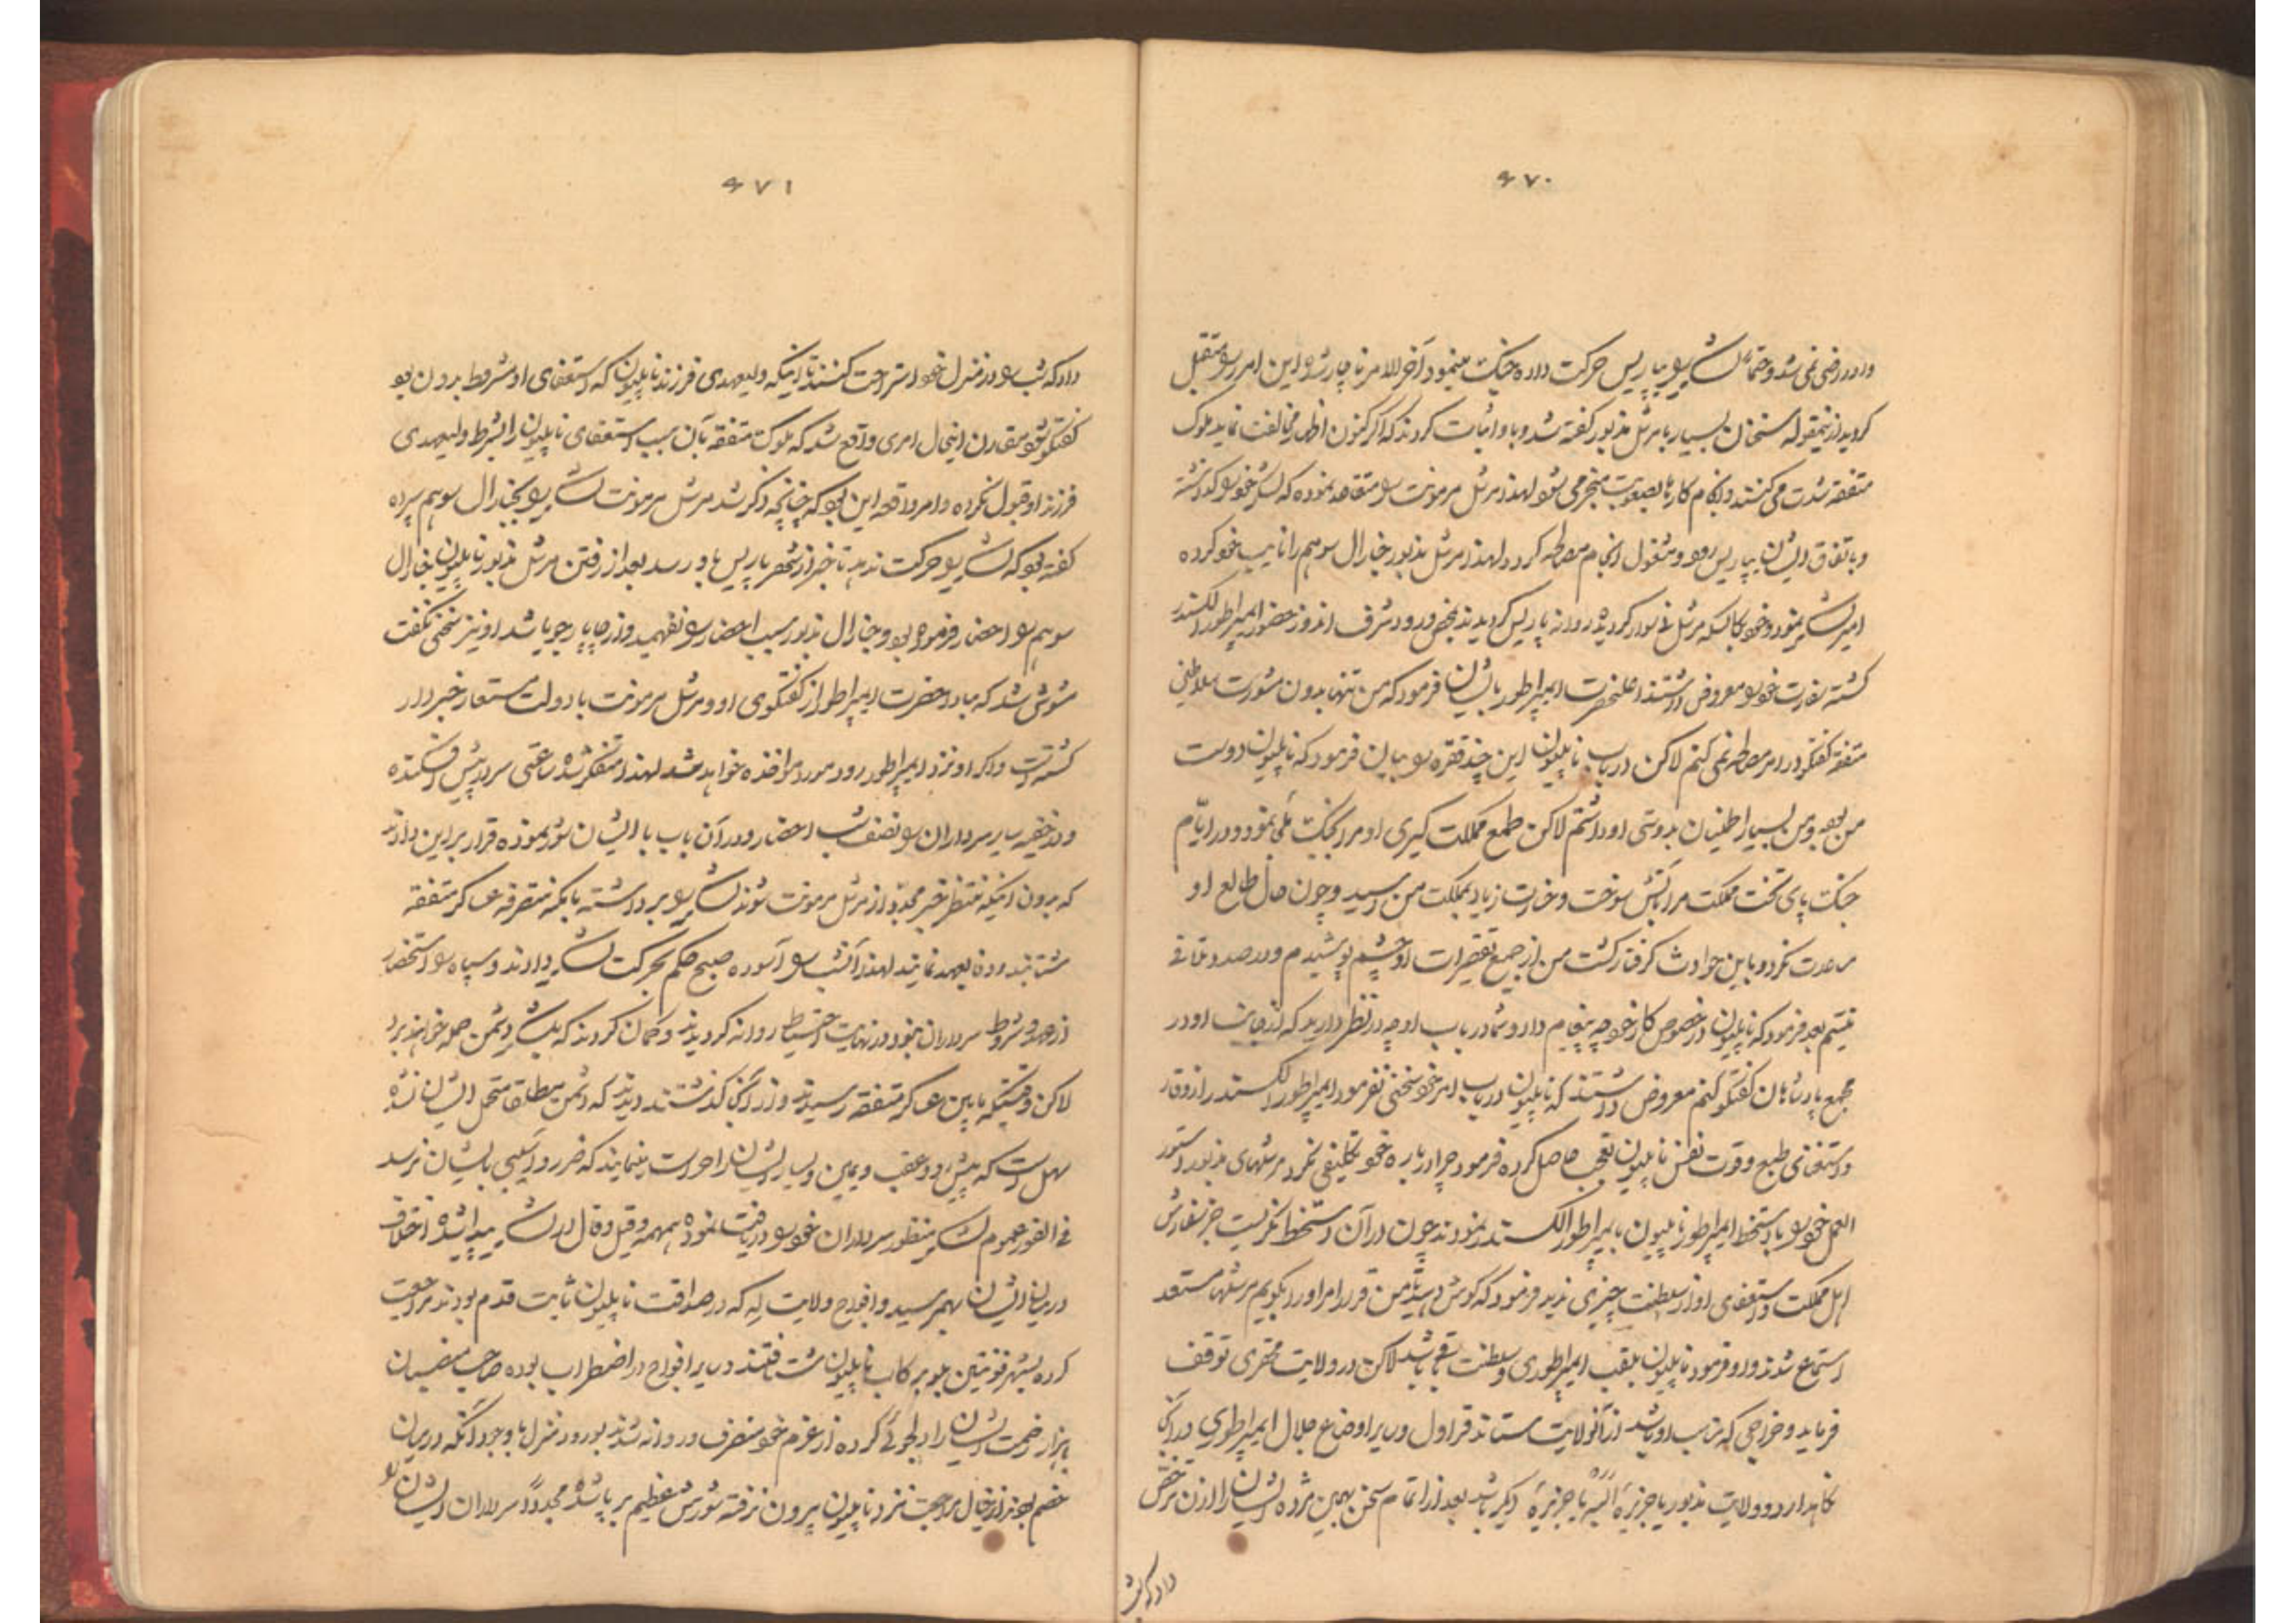 ۴۷۰
و او راضی نمی شد و حتماً لشکر را بپاریس حرکت داده جنک مینمود آخر الامر ناچار شده این امر را متقبل
کردید ازینمقوله سخنان بسیار با مرشل مذبور کفته شد و باو اثبات کردند که اکر کنون اظهار مخالفت نماید ملوک
متفقه شدت می کنند و انجام کارها بصعوبت منجر می شود لهذا مرشل مرمونت را متقاعد نموده که لشکر خود را کذاشته
و باتفاق ایشان بپاریس رود و مشغول انجام مصالحه کردد لهذا مرشل مذبور جنارال سوهم را نایب خود کرده
امیر لشکر نمود و خود بکالسکه مرشل نی سوار کردیده روانه پاریس کردیدند بمحض ورود شرف اندوز حضور ایمپراطور الکسندر
کشته سفارت خود را معروض داشتند اعلیحضرت ایمپراطور بایشان فرمود که من تنها بدون مشورت سلاطین
متفقه کفتکو در امر مصالحه نمی کنم لاکن در باب ناپلیون این چند فقره را بیان فرمود که ناپلیون دوست
من بود و من بسیار اطمینان بدوستی او داشتم لاکن طمع مملکت کیری او مرا بجنک ملجأ نمود و در ایام
جنک پای تخت مملکت مرا آتش سوخت و خسارت زیاد بمملکت من رسید و چون حال طالع او
مساعدت نکرد و باین حوادث کرفتار کشت من از جمیع تقصیرات او چشم پوشیدم و در صدد تلافی
نیستم بعد فرمود که ناپلیون در خصوص کار خود چه پیغام داد و شما در باب او چه در نظر دارید که از جانب او در
مجمع پادشاهان کفتکو کنم معروض داشتند که ناپلیون در باب امر خود سخنی نفرمود ایمپراطور الکسندر از وقار
و استغنای طبع و قوت نفس ناپلیون تعجب حاصل کرده فرمود چرا در باره خود تکلیفی نکرد مرشلهای مذبور دستور
العمل خود را با دستخط ایمپراطور ناپلیون بایمپراطور الکسندر نمودند چون در آن دستخط نکریست جز سفارش
اهل مملکت و استعفای او از سلطنت چیزی ندید فرمود که کوش دهید تا من قرار امر او را بکویم مرشلها مستعد
استماع شدند و او فرمود ناپلیون بلقب ایمپراطوری و سلطنت باقی باشد لاکن در ولایت محقری توقف
فرماید و خراجی که مناسب او باشد از آنولایت ستاند قراول و سایر اوضاع جلال ایمپراطوری در آنجا
نکاهدارد و ولایت مذبور یا جزیرهٔ البه یا جزیرهٔ دیکر باشد بعد از اتمام سخن بهمین مژده ایشان را اذن مرخص
داد که شب
۴۷۱
داد که شب را در منزل خود استراحت کنند تا اینکه ولیعهدی فرزند ناپلیون که استعفای او مشروط بدون بود
کفتکو شود مقارن اینحال امری واقع شد که ملوک متفقه بآن سبب استعفای ناپلیون را بشرط ولیعهدی
فرزند او قبول نکرده و امر واقعه این بود که چنانچه ذکر شد مرشل مرمونت لشکر را بجنارال سوهم سپرده
کفته بود که لشکر را حرکت ندهد تا خبر از شهر پاریس باو رسد بعد از رفتن مرشل مذبور ناپلیون جنارال
سوهم را احضار فرموده بود و جنارال مذبور سبب احضار را نفهمید و از چاپار جویا شد او نیز سخنی نکفت
مشوش شد که مبادا حضرت ایمپراطور از کفتکوی او و مرشل مرمونت با دولت مستعار خبردار
کشته است و اکر او نزد ایمپراطور رود مورد مواخذه خواهد شد لهذا متفکر شده ساعتی سر در پیش افکنده
و در خفیه سایر سرداران را نصف شب احضار و در آن باب با ایشان شور نموده قرار بر این دادند
که بدون اینکه منتظر خبر مجدد از مرشل مرمونت شوند لشکر را برداشته بامکنه متصرفه عساکر متفقه
شتابند و وفا بعهد نمایند لهذا آنشب را آسوده صبح حکم بحرکت لشکر دادند و سپاه را استحضار
از عهد و شروط سرداران نبود و در نهایت احتیاط روانه کردیدند و کمان کردند که بلشکر دشمن حمله خواهند برد
لاکن وقتیکه مابین عساکر متفقه رسیدند و از آنجا کذشتند دیدند که دشمن مطلقا متحمل ایشان نشده
سهل است که پیش و عقب و یمین و یسار ایشان را حراست مینمایند که ضرر و آسیبی بایشان نرسد
فی الفور عموم لشکر منظور سرداران خود را دریافت نموده همهمه و قیل و قال در لشکر پیدا شده اختلاف
در میان ایشان بهم رسید و افواج ولایت له که در صداقت ناپلیون ثابت قدم بودند مراجعت
کرده بشهر فونتین بلو برکاب ناپلیون شتافتند و سایر افواج در اضطراب بوده صاحب منصبان
بهزار زحمت ایشان را دلجوئی کرده از عزم خود منصرف و روانه شدند بورود منزل با وجود آنکه در میان
خصم بودند از خیال مراجعت نزد ناپلیون بیرون نرفته شورش عظیم بر پا شده مجدداً سرداران ایشان را